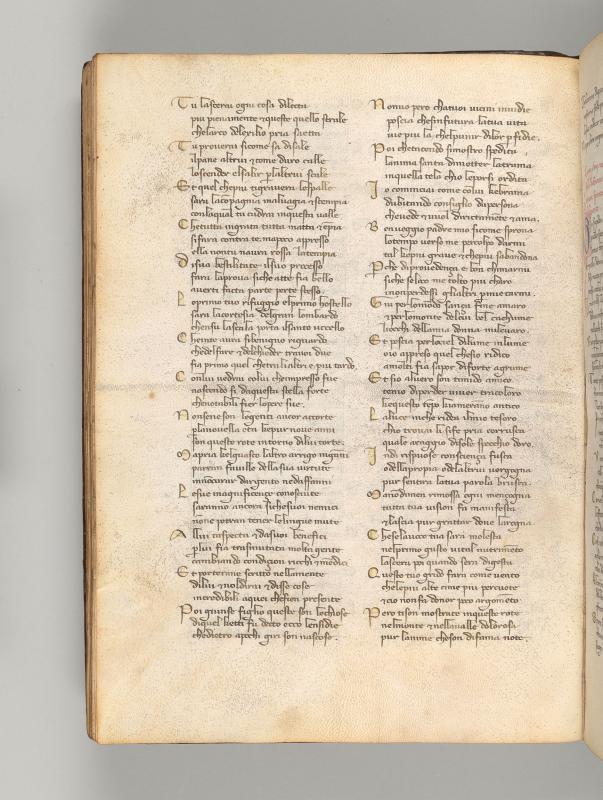 Tu lascerai ogni cosa dilecta
piu pienamente & queste quello strale
che larco delexilio pria saetta
Tu proverai si come sa di sale
il pane altrui & come duro calle
lo scender el salir p laltrui scale
Et quel che piu ti gravera le spalle
sara la compagnia malvagia & scempia
con la qual tu cadrai in questa valle
Che tutta ingrata tutta matta & epia
si fara contra te ma poco appresso
ella non tu navra rossa la tempia
Di sua bestialitate il suo processo
fara la prova siche atte fia bello
averti facta parte per te stesso
Lo primo tuo rifuggio el primo hostello
sara la cortesia del gran lombardo
chen su la scala porta il sancto uccello
Che in te avra si benigno riguardo
che del fare & del chieder tra voi due
fia primo quel che tra li altri e piu tardo
Con lui vedrai colui che impresso fue
nascendo si da questa stella forte
che notabili fier lopere sue
Non se ne son le genti ancor accorte
p la novella eta ke pur nove anni
son queste rote intorno di lui torte
Ma pria kel guasco laltro arrigo inganni
parran faville della sua virtute
in non curar dargento ne daffanni
Le sue magnificenze conosciute
saranno ancora si che suoi nemici
none potran tener le lingue mute
Allui taspecta & da suoi benefici
p lui fia trasmutata molta gente
cambiando condizion ricchi & medici
Et porterane scritto nella mente
di lui & nol dirai & disse cose
incredibili a quei che fien presente
Poi giunse figlio queste son le chiose
di quel che tti fu detto ecco le nsidie
che dietro a pochi giri son nascose
Non vo pero cha tuoi vicini invidie
poscia che sinfutura la tua vita
vie piu la chel punir di lor pfidie
Poi che tacendo si mostro spedita
lanima santa di metter la trama
in quella tela chio le porsi ordita
Io cominciai come colui ke brama
dubitando consiglio da persona
che vede & vuol dirictamente & ama
Ben veggio padre mio si come sprona
lo tempo verso me p colpo darmi
tal ke piu grave e che piu sabandona
P che di provedenza e bon chi marmi
si che se loco me tolto piu charo
io non perdessi gli altri p miei carmi
Giu per lo mondo sanza fine amaro
& per lo monte del cui bel cachume
li occhi della mia donna mi levaro
Et poscia per lo ciel di lume in lume
o io appreso quel che sio ridico
a molti fia sapor di forte agrume
Et sio al vero son timido amico
temo di perder viver tra coloro
ke questo tepo kiameranno antico
La luce in che ridea il mio tesoro
chio trovai li si fe pria corrusca
quale a raggio di sole specchio doro
Indi rispuose conscienza fusca
o della propia o dellaltrui vergogna
pur sentira la tua parola brusca
Ma non dimen rimossa ogni menzogna
tutta tua vision fa manifesta
& lascia pur grattar dove la rogna
Che se la voce tua sara molesta
nel primo gusto vital nutrimeto
lascera poi quando sera digesta
Questo tuo grido fara come vento
che le piu alte cime piu percuote
& cio non fia donor poco argometo
Pero ti son mostrate in queste rote
nel monte & nella valle dolorosa
pur lanime che son di fama note